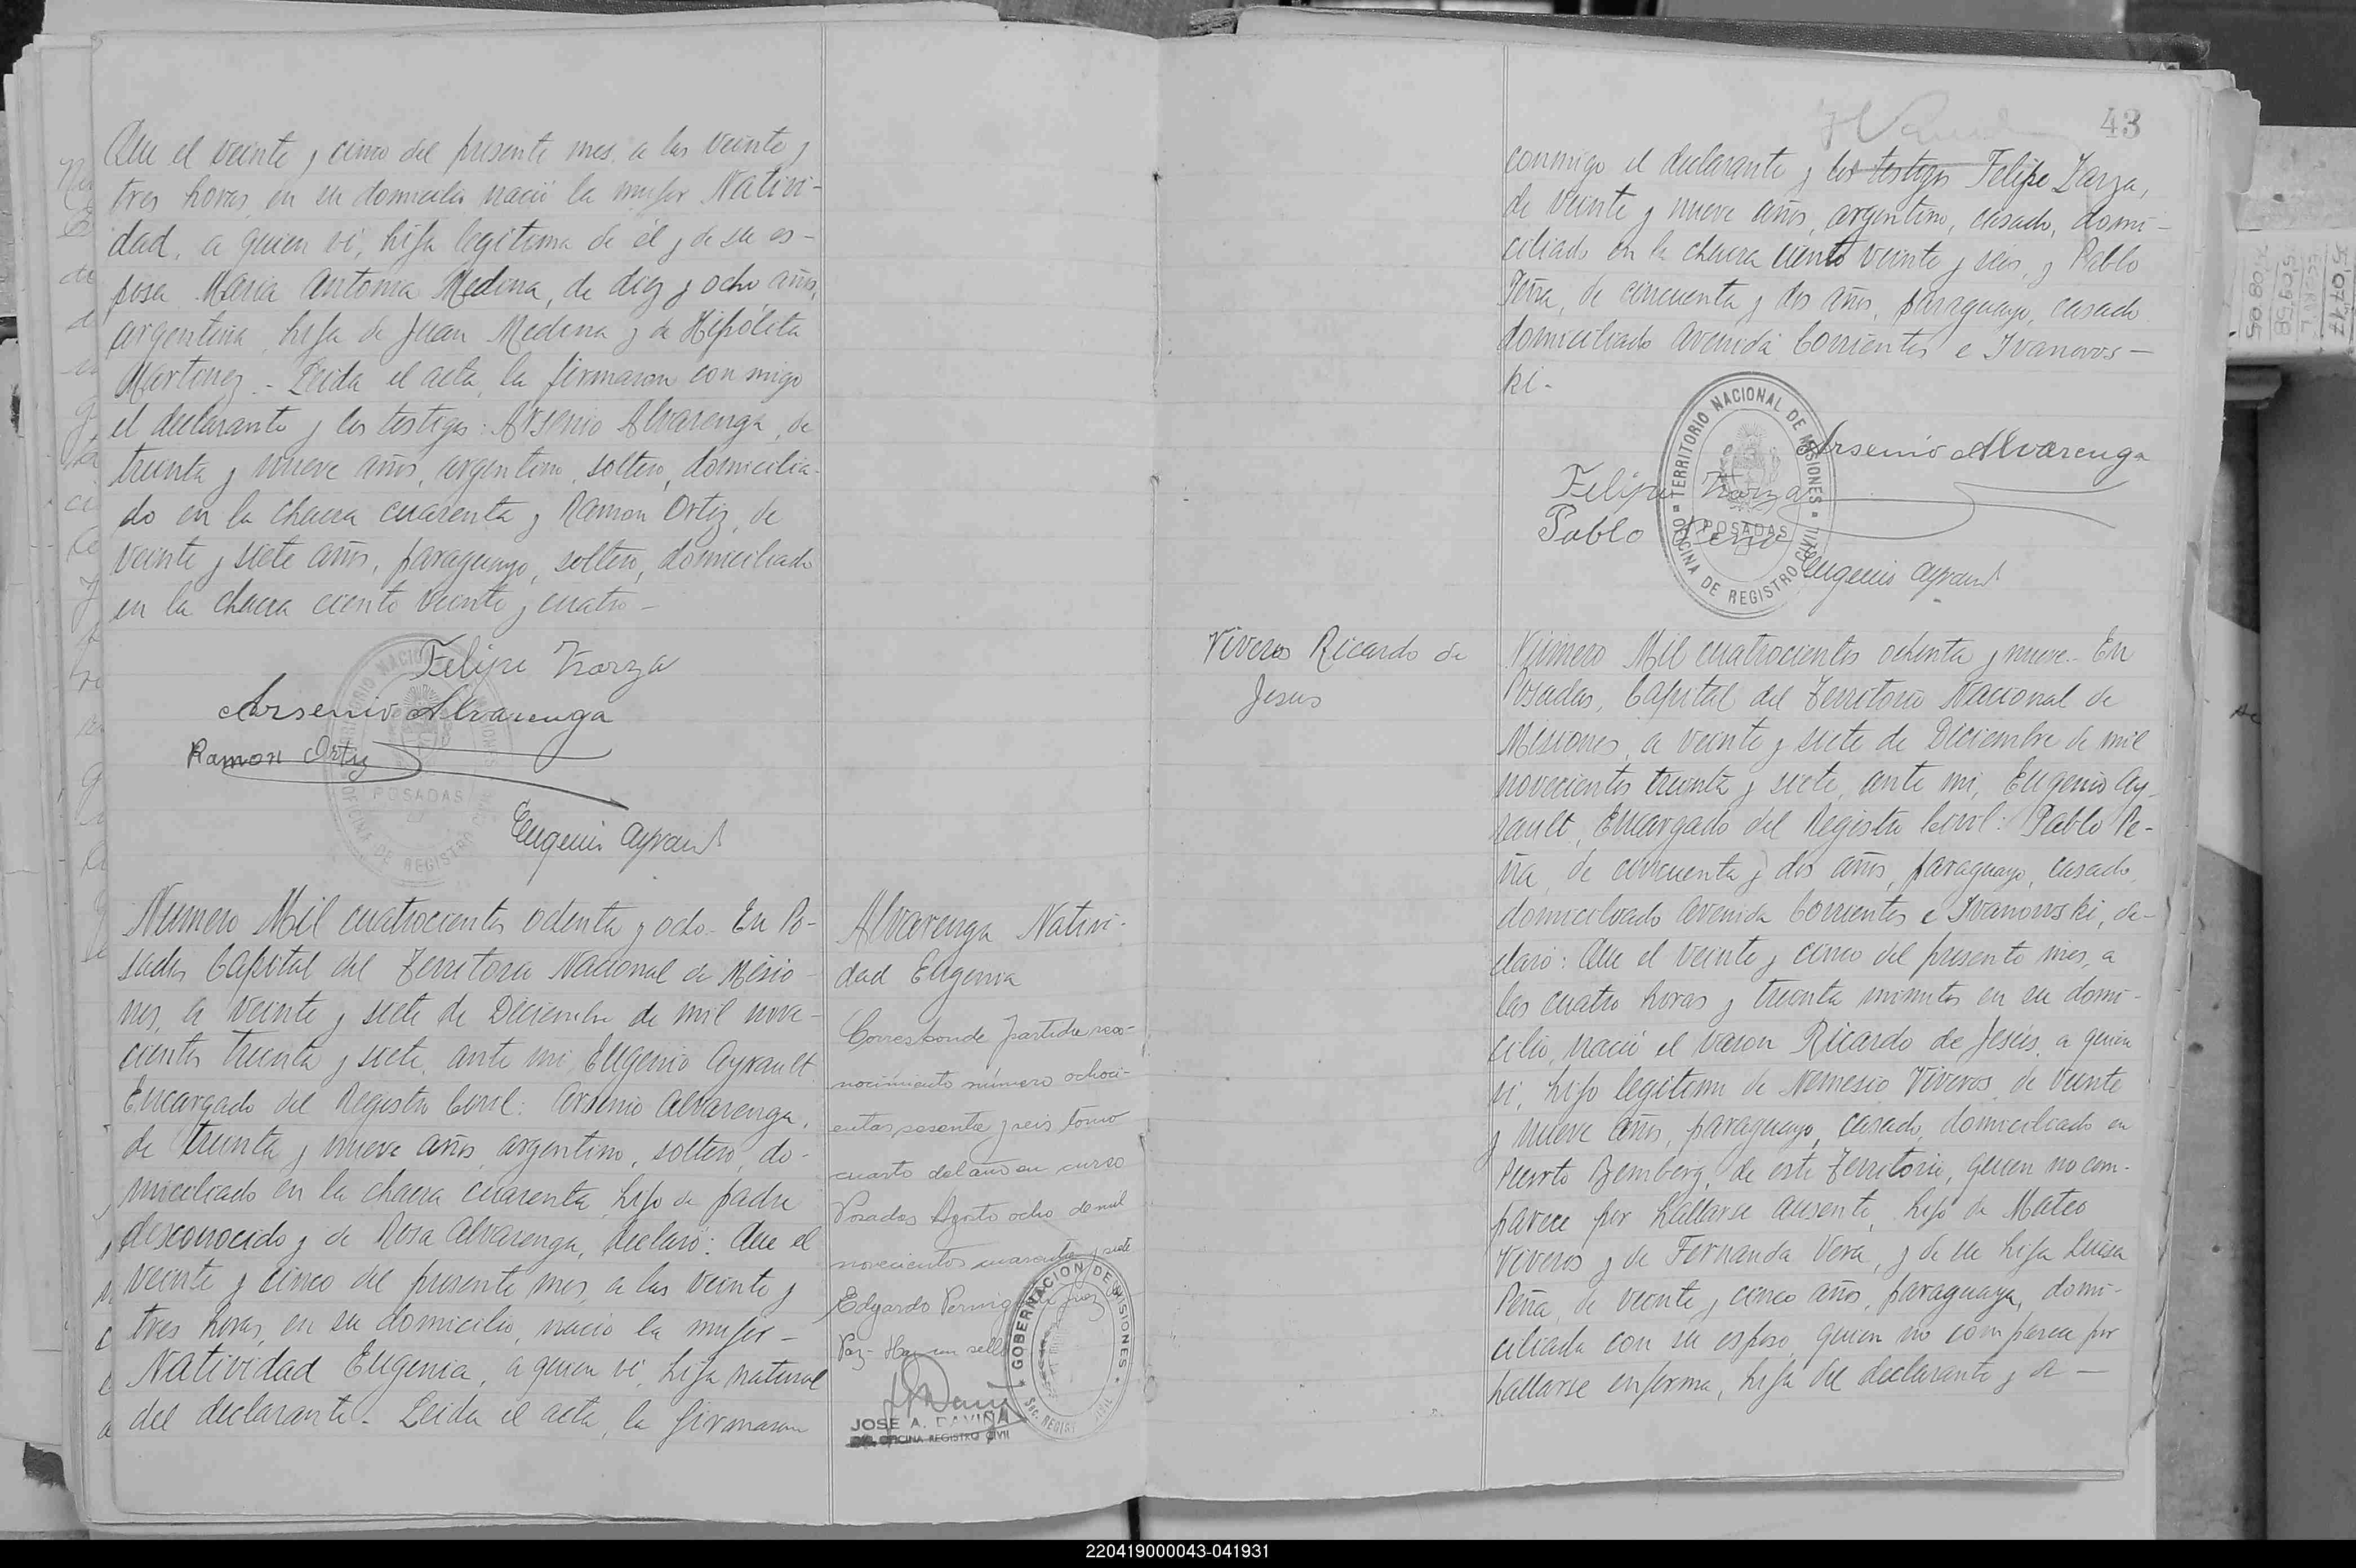 Que el veinte y cinco del presente mes, a las veinte y
tres horas, en su domicilio nació la mujer Nativi-
dad, a quien ví, hija legítima de él y de su es-
posa María Antonia Medina, de diez y ocho años,
argentina, hija de Juan Medina y de Hipólita
Martinez.- Leida el acta, la firmaron conmigo
el declarante y los testigos: Arsenio Alvarenga, de
treinta y nueve años, argentino, soltero, domicilia-
do en la chacra cuarenta y Ramon Ortiz, de
veinte y siete años, paraguayo, soltero, domiciliado
en la chacra ciento veinte y cuatro-
Felipe Zarza
Arsenio Alvarenga
Ramon Ortiz
POSADAS
OFICINA DE REGISTRO CIVIL
Eugenio Ayrault
Número Mil cuatrocientos ochenta y ocho- En Po-
sadas Capital del Territorio Nacional de Misio-
nes, a veinte y siete de Diciembre de mil nove-
cientos treinta y siete, ante mi, Eugenio Ayrault
Encargado del Registro Civil: Arsenio Alvarenga,
de treinta y nueve años, argentino, soltero, do-
miciliado en la chacra cuarenta, hijo de padre
desconocido y de Rosa Alvarenga, declaró: Que el
veinte y cinco del presente mes, a las veinte y
tres horas, en su domicilio, nació la mujer-
Natividad Eugenia, a quien ví, hija natural
del declarante- Leida el acta, la firmaron
Alvarenga Nativi-
dad Eugenia
Corresponde partida reco-
nocimiento número ochoci-
entos sesenta y seis tomo
cuarto del año en curso
Posadas Agosto ocho de mil
novecientos cuarenta y siete
Edgardo Juez
Paz- Hay un sello
GOBERNACION DE MISIONES
JOSE A. DAVIÑA
OFICINA REGISTRO CIVIL
43
conmigo el declarante y los testigos Felipe Zarza,
de veinte y nueve años, argentino, casado, domi-
ciliado en la chacra ciento veinte y seis, y Pablo
Peña, de cincuenta y dos años, paraguayo, casado
domiciliado Avenida Corrientes e Ivanows-
ki-
TERRITORIO NACIONAL DE MISIONES
POSADAS
OFICINA DE REGISTRO CIVIL
Arsenio Alvarenga
Felipe Zarza
Pablo Peña
Eugenio Ayrault
Viveros Ricardo de
Jesus
Número Mil cuatrocientos ochenta y nueve- En
Posadas, Capital del Territorio Nacional de
Misiones, a veinte y siete de Diciembre de mil
novecientos treinta y siete, ante mi, Eugenio Ay-
rault, Encargado del Registro Civil: Pablo Pe-
ña, de cincuenta y dos años, paraguayo, casado,
domiciliado Avenida Corrientes e Ivanowski, de-
claró: Que el veinte y cinco del presente mes, a
las cuatro horas y treinta minutos en su domi-
cilio, nació el varon Ricardo de Jesús, a quien
ví, hijo legítimo de Nemesio Viveros, de veinte
y nueve años, paraguayo, casado, domiciliado en
Puerto Bemberg, de este Territorio, quien no com-
parece por hallarse ausente, hijo de Mateo
Viveros y de Fernanda Vera, y de su hija Luisa
Peña, de veinte y cinco años, paraguaya, domi-
ciliada con su esposo, quien no comparece por
hallarse enferma, hija del declarante y de-
220419000043-041931